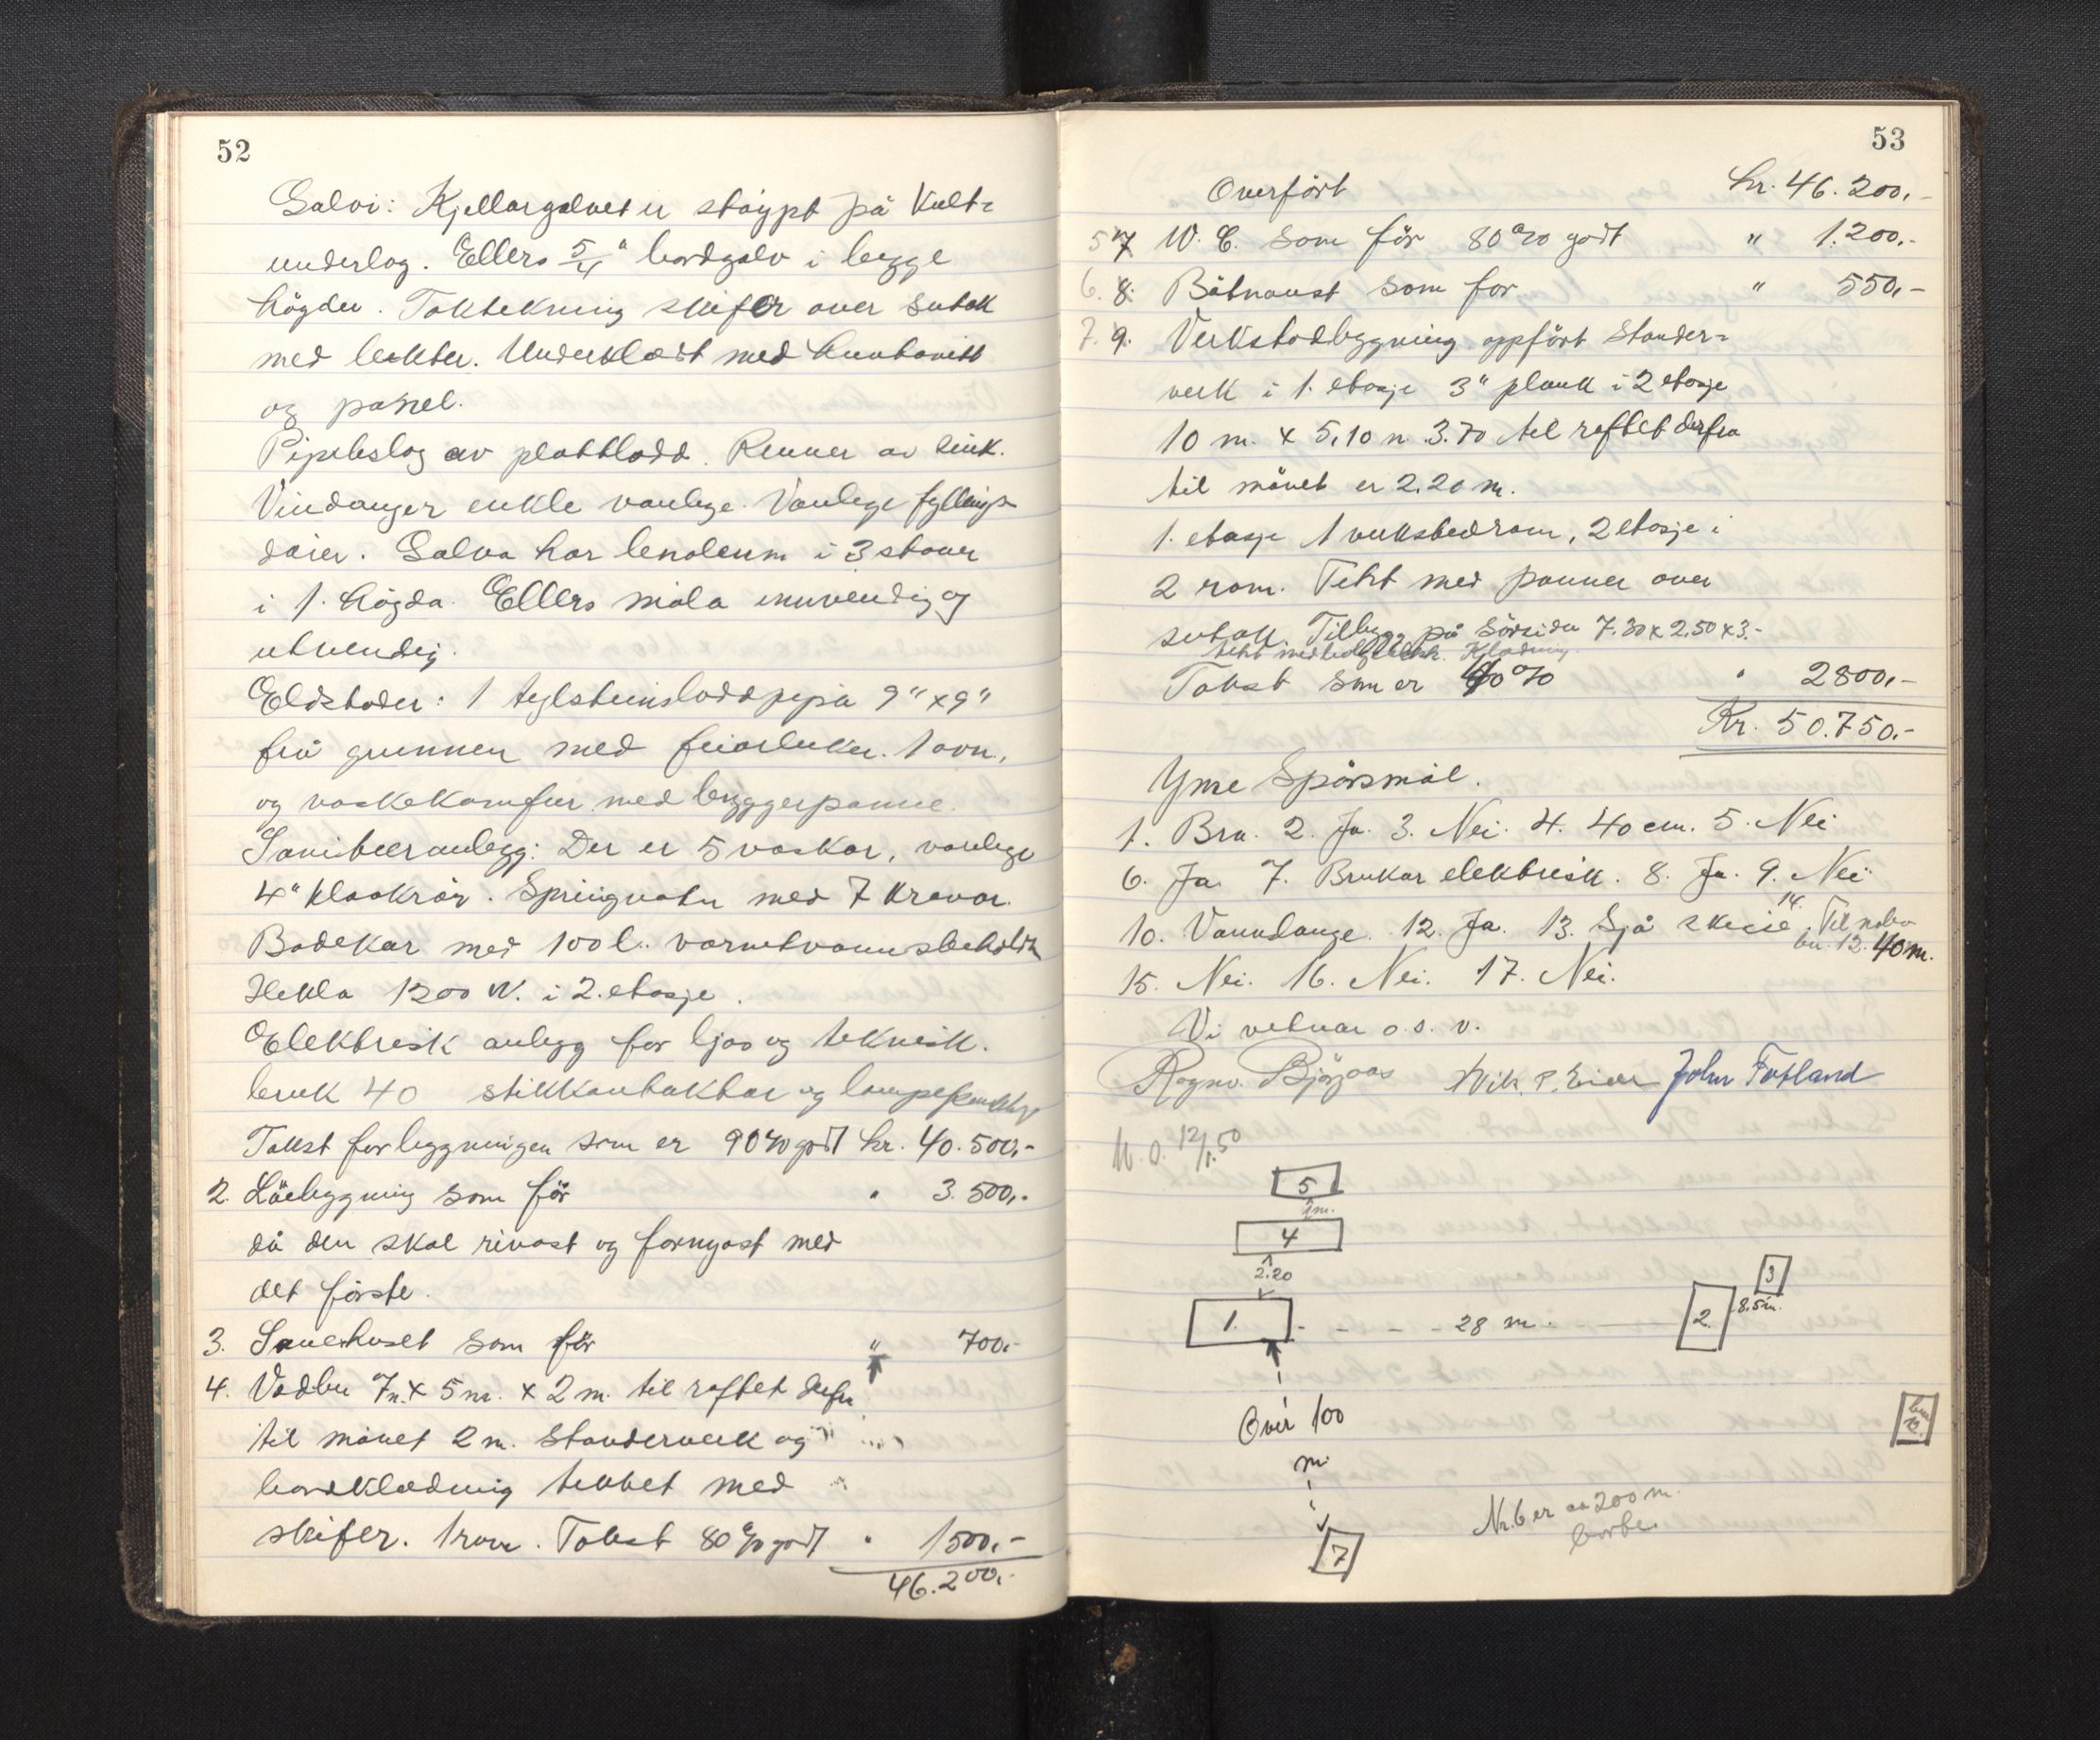 52
Golvi: Kjellargolvet er støypt på Kult=
underlag. Ellers 5/4" bordgolv i begge
högder. Taktekning skifer over sutak
med lekter. Underkledt med huntonitt
og panel.
Pipebeslag av plattlodd. Renner av sink.
Vindauger enkle vanlege. Vanlege fyllings-
dører. Golva har lenoleum i 3 stover
i 1. högda. Ellers måla innvendig og
utvendig.
Eldstader: 1 teglsteinsloddpipa 9" x 9"
frå grunnen med feiarluker. 1 ovn,
og vaskekomfur med bryggerpanne.
Sanitæranlegg: Der er 5 vaskar, vanlege
4" kloakrör. Springvatn med 7 kranar.
Badekar med 100 l. varmtvannsbeholdar
Hekla 1200 W. i 2. etasje.
Elektrisk anlegg for ljos og teknisk.
bruk 40 stikkontaktar og lampepunkt
Takst for bygningen som er 90% godt kr. 40.500,-
2. Löebygning som för " 3.500,-
då den skal rivast og fornyast med
det förste.
3. Sauehuset som för " 700,-
4. Vedbu 7m. x 5 m. x 2 m. til raftet derfra
til mönet 2 m. Standerverk og
bordkledning tekket med
skifer. 1 rom. Takst 80% godt " 1500,-
46.200,-
53
Overfört kr. 46.200,-
5 7 W.C. som för 80% godt " 1.200,-
6. 8. Båtnaust som for " 550,-
7. 9. Verkstadbygning oppfört stander=
verk i 1. etasje 3" plank i 2 etasje
10 m. x 5,10 m. 3.70 til raftet derfra
til mönet er 2.20 m.
1. etasje 1 verkstedrom, 2 etasje i
2 rom. Tekt med panner over
sutak. Tilbygg på Sörsida 7.30 x 2.50 x 3.-
Takst som er % " 2800,-
Kr. 50.750,-
Ymse Spörsmål.
1. Bra. 2. Ja. 3. Nei. 4. 40 cm. 5. Nei
6. Ja. 7. Brukar elektrisk. 8. Ja. 9. Nei
10. Vannslange. 12. Ja. 13. Sjå skisse 14. Til nabo
bn. 12. 40 m.
15. Nei. 16. Nei. 17. Nei.
Vi vetnar o.s.v.
Ragnv. Eide John Fotland
12/1.50
5
2m.
4
2.20
1. - - - 28 m. 2. 8.5m. 3
Over 100
m.
bn.
12.
7
Nr. 6 er ca 200 m.
borte.